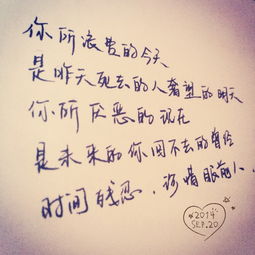 你所浪费的今天
是昨天死去的人奢望的明天
你所厌恶的现在
是未来的你回不去的曾经
时间残忍，珍惜眼前人.
2014
SEP.20